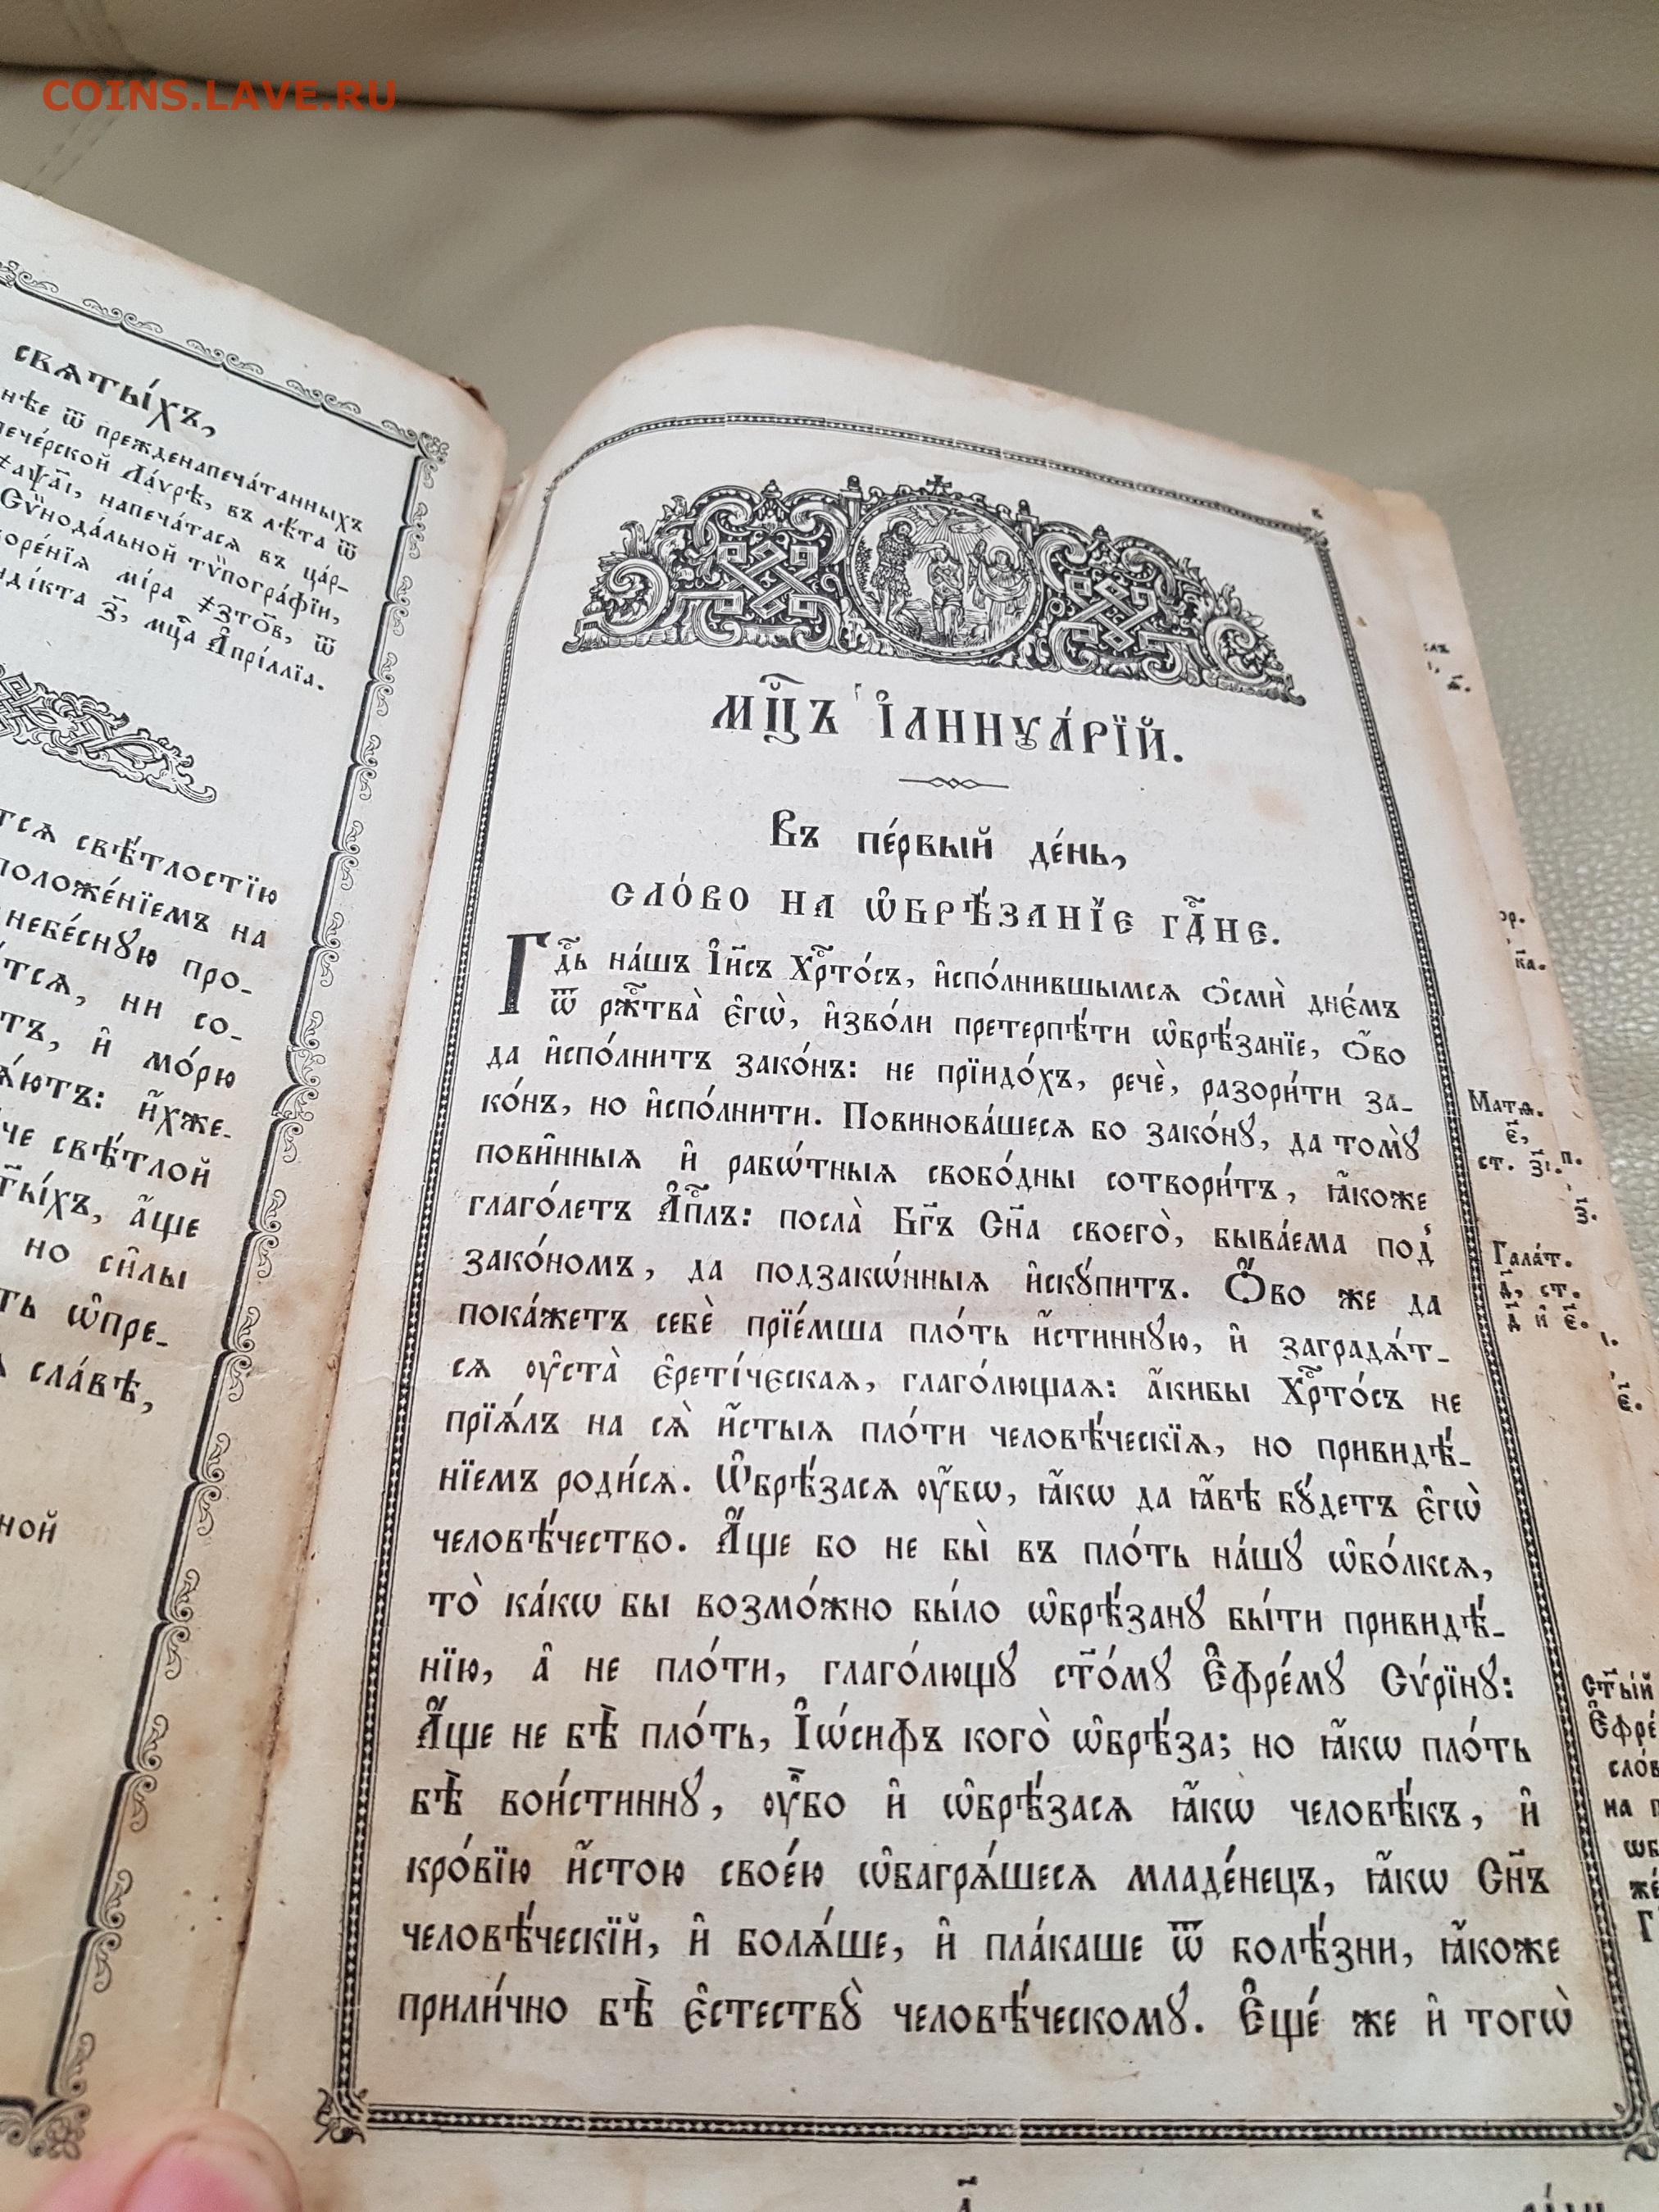 COINS.LAVE.RU
свѧты́хъ,
ѿ прежденапеча́танныхъ
Ла́ѵрѣ, въ лѣ́та ѿ
напеча́тасѧ въ ца́р-
Сѷнода́льной тѷпогра́фїи,
мі́ра ҂зто҃в, ѿ
з҃, мц҃а А҆прі́ллїа.
свѣ́тлостїю
на
небе́сную про-
ни со-
и҆ мо́рю
и҆́хже
свѣ́тлой
а҆́ще
но си̑лы
ѡ҆пре-
сла́вѣ,
Мц҃ъ І҆аннꙋа́рїй.
Въ пе́рвый де́нь,
сло́во на ѡ҆брѣ́занїе гдⷭ҇не.
Гдⷭ҇ь на́шъ І҆и҃съ Хрⷭ҇то́съ, и҆спо́лнившымсѧ ѻ҆смѝ дне́мъ
ѿ ржⷭ҇тва̀ є҆гѡ̀, и҆зво́ли претерпѣ́ти ѡ҆брѣ́занїе, ѻ҆́во
да и҆спо́лнитъ зако́нъ: не прїидо́хъ, речѐ, разори́ти за-
ко́нъ, но и҆спо́лнити. Повинова́шесѧ бо зако́нꙋ, да томꙋ̀
пови̑нныѧ и҆ рабѡ́тныѧ свобо́дны сотвори́тъ, ꙗ҆́коже
глаго́летъ А҆пⷭ҇лъ: посла̀ Бг҃ъ Сн҃а своего̀, быва́ема под̾
зако́номъ, да подзакѡ́нныѧ и҆скꙋ́питъ. Ѻ҆́во же да
пока́жетъ себѐ прїе́мша пло́ть и҆́стиннꙋю, и҆ заградѧ́т-
сѧ ᲂу҆ста̀ є҆рети́чєскаѧ, глаго́лющаѧ: а҆́кибы Хрⷭ҇то́съ не
прїѧ́лъ на сѧ̀ и҆́стыѧ пло́ти человѣ́ческїѧ, но привидѣ́-
нїемъ роди́сѧ. Ѡ҆брѣ́засѧ ᲂу҆́бѡ, ꙗ҆́кѡ да ꙗ҆́вѣ бꙋ́детъ є҆гѡ̀
человѣ́чество. А҆́ще бо не бы̀ въ пло́ть на́шꙋ ѡ҆бо́лксѧ,
то̀ ка́кѡ бы возмо́жно бы́ло ѡ҆брѣ́занꙋ бы́ти привидѣ́-
нїю, а҆ не пло́ти, глаго́лющꙋ ст҃о́мꙋ Є҆фре́мꙋ Сѵ́рїнꙋ:
А҆́ще не бѣ̀ пло́ть, І҆ѡ́сифъ кого̀ ѡ҆брѣ́за; но ꙗ҆́кѡ пло́ть
бѣ̀ вои́стиннꙋ, ᲂу҆́бо и҆ ѡ҆брѣ́засѧ ꙗ҆́кѡ человѣ́къ, и҆
кро́вїю и҆́стою свое́ю ѡ҆багрѧ́шесѧ младе́нецъ, ꙗ҆́кѡ Сн҃ъ
человѣ́ческїй, и҆ болѧ́ше, и҆ пла́каше ѿ болѣ́зни, ꙗ҆́коже
прили́чно бѣ̀ є҆стествꙋ̀ человѣ́ческомꙋ. Є҆ще́ же и҆ тогѡ̀
Матѳ.
є҃,
ст. з҃і. п.
Гала́т.
д҃, ст.
д҃ и҆ є҃.
Ст҃ы́й
на